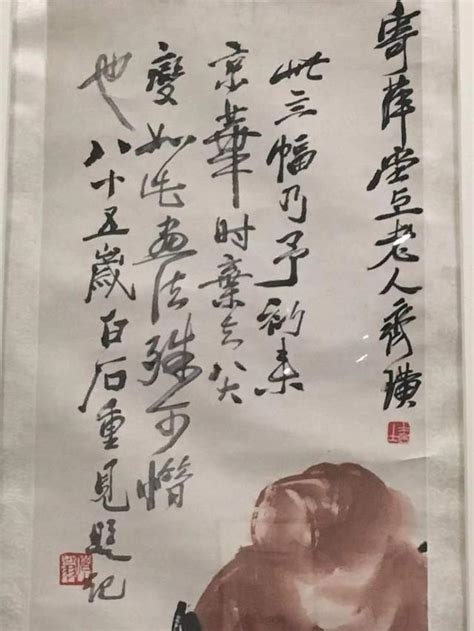 寄萍堂上老人齊璜
此三幅乃予初來
京華时棄去八大
變如此畫法殊可惜
也八十五歲白石重見題記